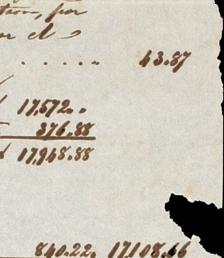 tion, for
or A
. . . . . . 43.87
17,572..
376.88
17,948.88
840.22. 17,108.66